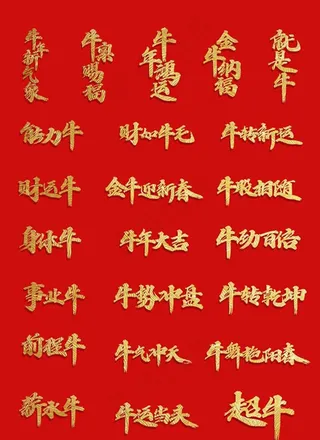 牛年新气象
牛禀赐福
牛年鸿运
金牛纳福
就是牛
能力牛
财如牛毛
牛转新运
财运牛
金牛迎新春
牛股相随
身体牛
牛年大吉
牛劲百倍
事业牛
牛势冲盘
牛转乾坤
前程牛
牛气冲天
牛舞艳阳春
薪水牛
牛运当头
超牛